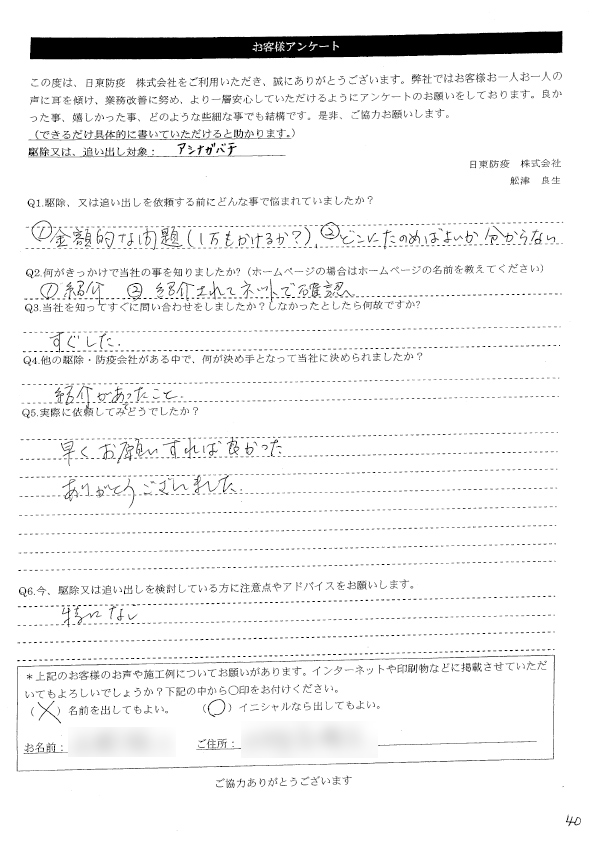 お客様アンケート
この度は、日東防疫 株式会社をご利用いただき、誠にありがとうございます。弊社ではお客様お一人お一人の
声に耳を傾け、業務改善に努め、より一層安心していただけるようにアンケートのお願いをしております。良か
った事、嬉しかった事、どのような些細な事でも結構です。是非、ご協力お願いします。
(できるだけ具体的に書いていただけると助かります。)
駆除又は、追い出し対象: アシナガバチ
日東防疫 株式会社
舩津 良生
Q1.駆除、又は追い出しを依頼する前にどんな事で悩まれていましたか?
①金額的な問題(1万もかけるか?)、②どこにたのめばよいか分からない
Q2.何がきっかけで当社の事を知りましたか?(ホームページの場合はホームページの名前を教えてください)
①紹介 ②紹介されてネットで確認へ
Q3.当社を知ってすぐに問い合わせをしましたか?しなかったとしたら何故ですか?
すぐした.
Q4.他の駆除・防疫会社がある中で、何が決め手となって当社に決められましたか?
紹介があったこと.
Q5.実際に依頼してみどうでしたか?
早くお願いすれば良かった
ありがとうございました.
Q6.今、駆除又は追い出しを検討している方に注意点やアドバイスをお願いします。
特になし
*上記のお客様のお声や施工例についてお願いがあります。インターネットや印刷物などに掲載させていただ
いてもよろしいでしょうか?下記の中から○印をお付けください。
(×)名前を出してもよい。 (○)イニシャルなら出してもよい。
お名前: ご住所:
ご協力ありがとうございます
40